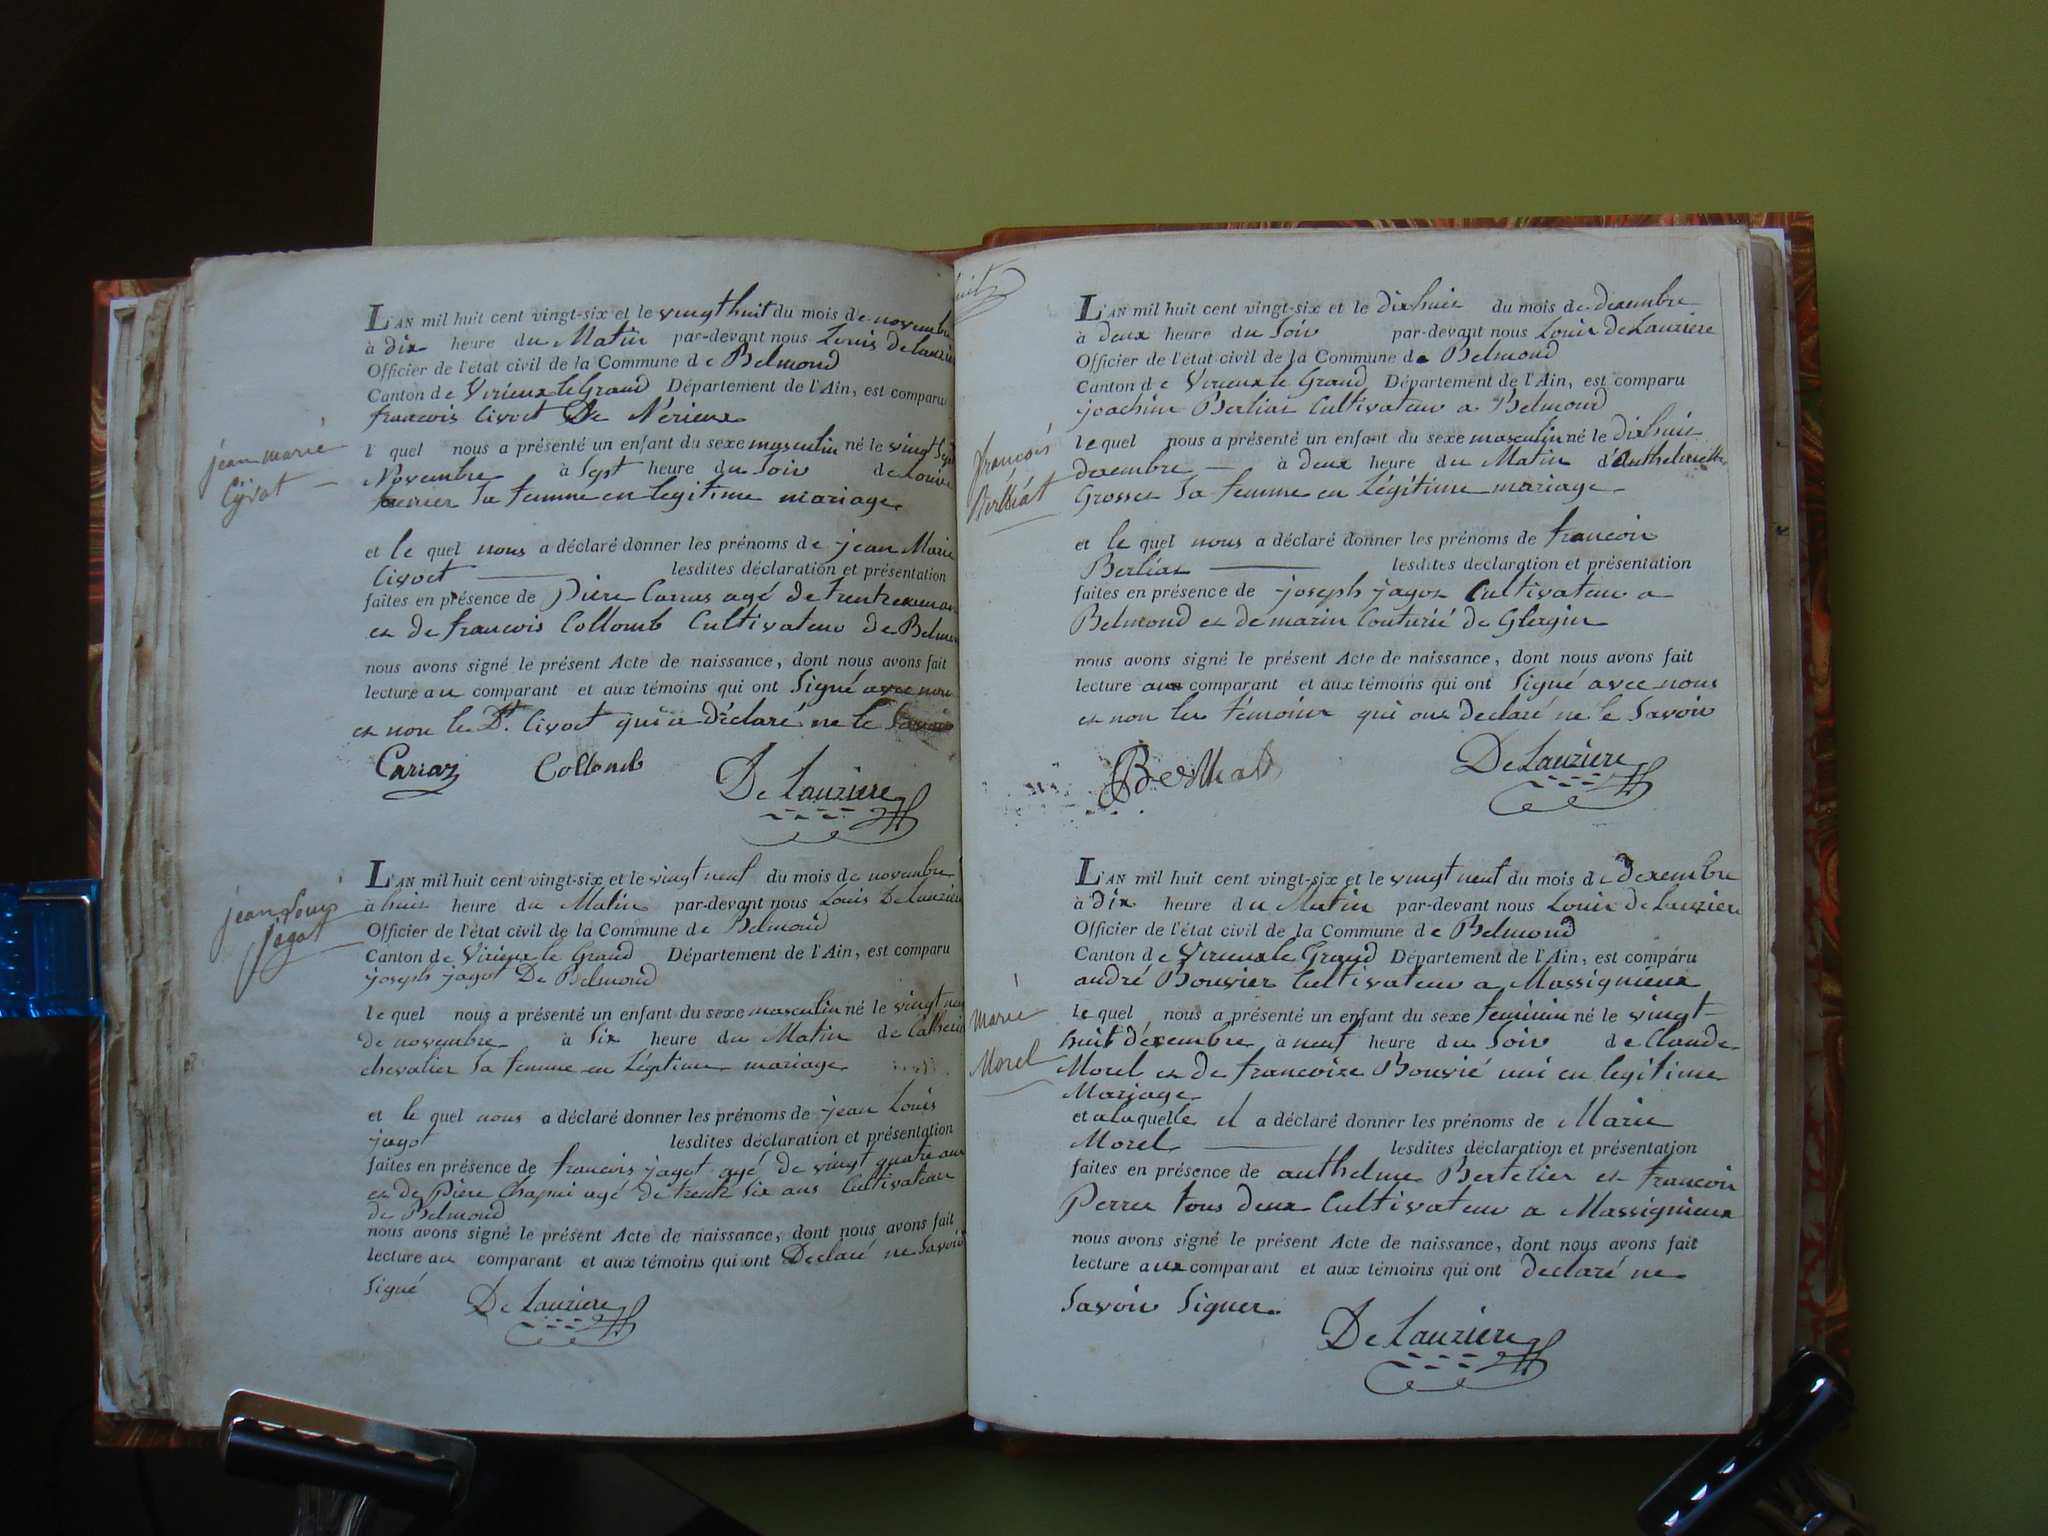 L'AN mil huit cent vingt-six et le vingt huit du mois de novembre
à dix heure du Matin par-devant nous Louis de Lauzière
Officier de l'état civil de la Commune de Belmond
Canton de Virieux le Grand Département de l'Ain, est comparu
francois Civoct De Nérieux
jean marie
Cÿvot
l quel nous a présenté un enfant du sexe masculin né le vingt sept
Novembre à Sept heure du Soir de Louise
sa femme en legitime mariage
et le quel nous a déclaré donner les prénoms de jean Marie
Civoct lesdites déclaration et présentation
faites en présence de Piere Carras agé de trente
et de francois Collomb Cultivateur de Belmond
nous avons signé le présent Acte de naissance, dont nous avons fait
lecture au comparant et aux témoins qui ont Signé avec nous
et non le Dt. Civoct qui a déclaré ne le Savoir
Carraz Collomb De Lauziere
L'AN mil huit cent vingt-six et le vingt neuf du mois de novembre
à huit heure du Matin par-devant nous Louis De Lauzière
jean Louis
jagot
Officier de l'état civil de la Commune de Belmond
Canton de Virieux le Grand Département de l'Ain, est comparu
joseph jagot De Belmond
le quel nous a présenté un enfant du sexe masculin né le vingt neuf
de novembre à Six heure du Matin de Catherine
chevalier Sa femme en Légitime mariage
et le quel nous a déclaré donner les prénoms de jean Louis
jagot lesdites déclaration et présentation
faites en présence de francois jagot agé de vingt quatre ans
et de Piere Chapui agé de trente Six ans Cultivateur
de Belmond
nous avons signé le présent Acte de naissance, dont nous avons fait
lecture au comparant et aux témoins qui ont Declaré ne Savoir
Signé
De Lauziere
L'AN mil huit cent vingt-six et le dixhuit du mois de decembre
à deux heure du Soir par-devant nous Louis de Lauziere
Officier de l'état civil de la Commune de Belmond
Canton de Virieux le Grand Département de l'Ain, est comparu
joachim Berliat Cultivateur a Belmond
francois
Berthiat
le quel nous a présenté un enfant du sexe masculin né le dixhuit
decembre à deux heure du Matin d'Anthelmette
Grosset Sa femme en Légitime mariage
et le quel nous a déclaré donner les prénoms de francois
Berliat lesdites déclaration et présentation
faites en présence de joseph jagot Cultivateur a
Belmond et de marin Couturié de Glergin
nous avons signé le présent Acte de naissance, dont nous avons fait
lecture aux comparant et aux témoins qui ont Signé avec nous
et non les témoins qui ont declaré ne le Savoir
De Lauziere
L'AN mil huit cent vingt-six et le vingt neuf du mois de Decembre
à dix heure du Matin par-devant nous Louis de Lauziere
Officier de l'état civil de la Commune de Belmond
Canton de Virieux le Grand Département de l'Ain, est comparu
andré Bouvier Cultivateur a Massignieux
marie
Morel
le quel nous a présenté un enfant du sexe feminin né le vingt-
huit décembre à neuf heure du Soir de Claude
Morel et de francoise Bouvié uni en legitime
Mariage
et a laquelle il a déclaré donner les prénoms de Marie
Morel lesdites déclaration et présentation
faites en présence de anthelme Bertelier et francois
Perret tous deux Cultivateur a Massignieux
nous avons signé le présent Acte de naissance, dont nous avons fait
lecture aux comparant et aux témoins qui ont declaré ne
Savoir Signer
De Lauziere